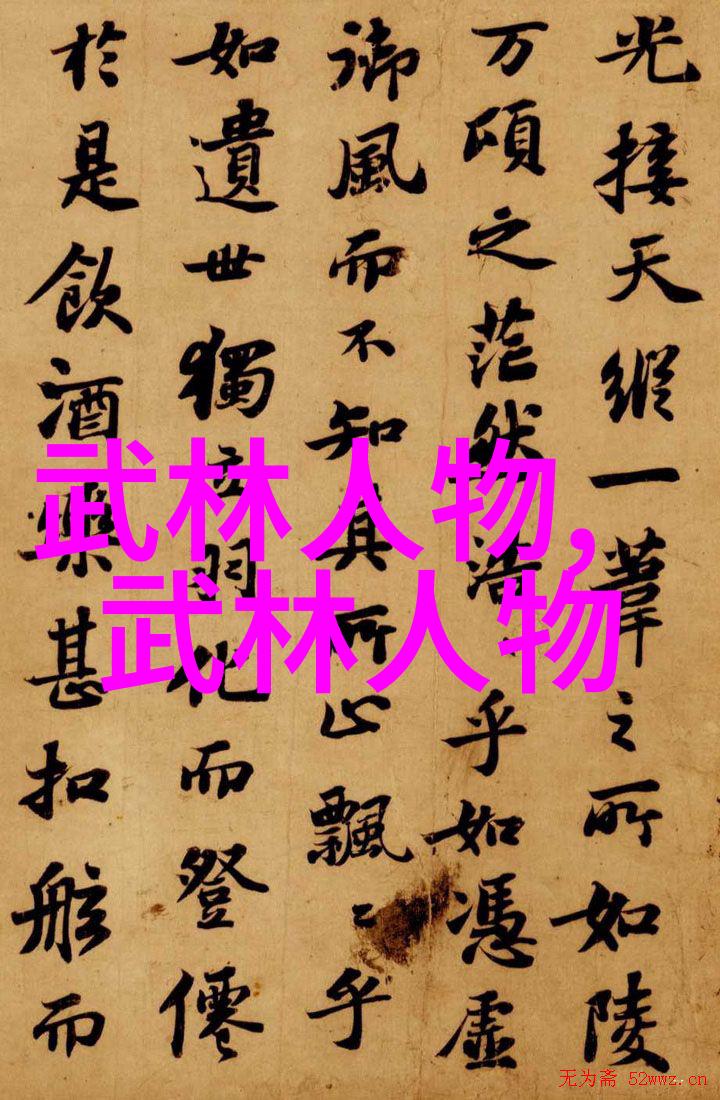 光接天縱一葦之所如陵
万頃之茫然浩〻乎如憑虛
御風而不知其所止飄〻乎
如遺世獨立羽化而登僊
於是飲酒樂甚扣舷而
武林人物,
武林人物
无为斋 52wwz.cn